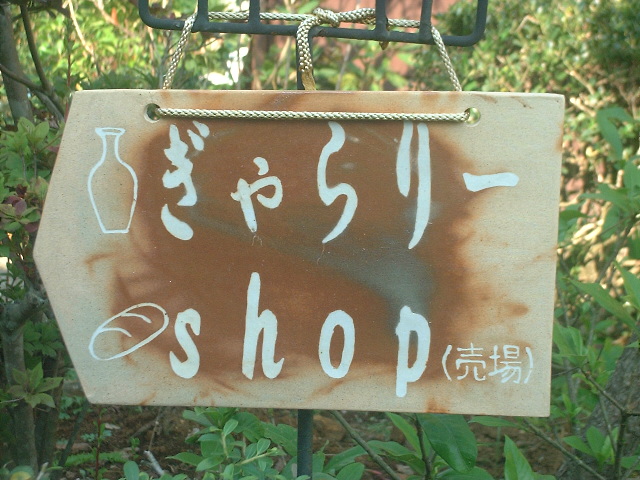 ぎゃらりー
shop(売場)